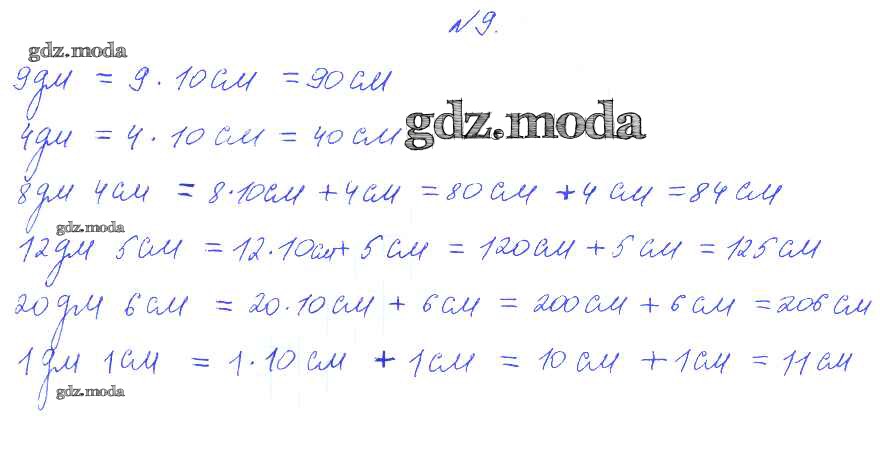 №9.
gdz.moda
9дм = 9 · 10 см = 90 см
4дм = 4 · 10 см = 40 см
gdz.moda
8дм 4см = 8·10см + 4см = 80 см + 4 см = 84 см
gdz.moda
12дм 5см = 12·10см + 5 см = 120 см + 5 см = 125 см
20 дм 6 см = 20·10 см + 6 см = 200 см + 6 см = 206 см
1 дм 1 см = 1·10 см + 1 см = 10 см + 1 см = 11 см
gdz.moda